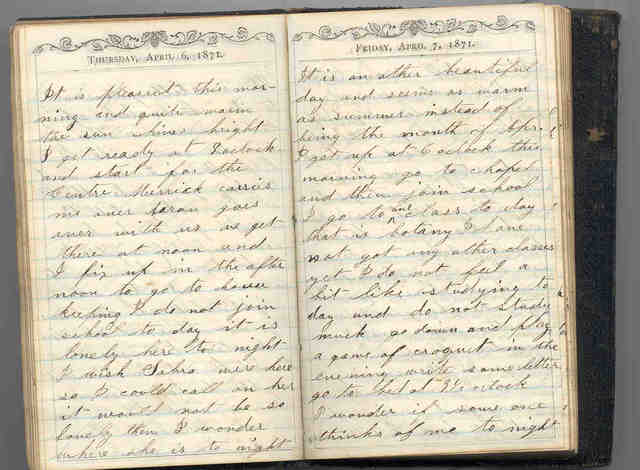 THURSDAY, APRIL 6, 1871.
It is pleasent this mor-
ning and quite warm
the sun shines bright
I get ready at 8 oclock
and start for the
Centre Merrick carries
me over Saran goes
over with us we get
there at noon and
I fix up in the after
noon to go to house
keeping I do not join
school to day it is
lonely here to night
I wish Sebra were here
so I could call on her
it would not be so
lonely then I wonder
where she is to night
FRIDAY, APRIL 7, 1871.
It is an other beautiful
day and seems as warm
as summer instead of
being the month of Apr.
I got up at 6 oclock this
morning go to chapel
and then join school
I go to one class to day
that is botany I have
not got any other classes
yet I do not feel a
bit like studying to
day and do not study
much go down and play
a game of croquet in the
evening write some letter
go to bed at 9 oclock
I wonder if some one
thinks of me to night